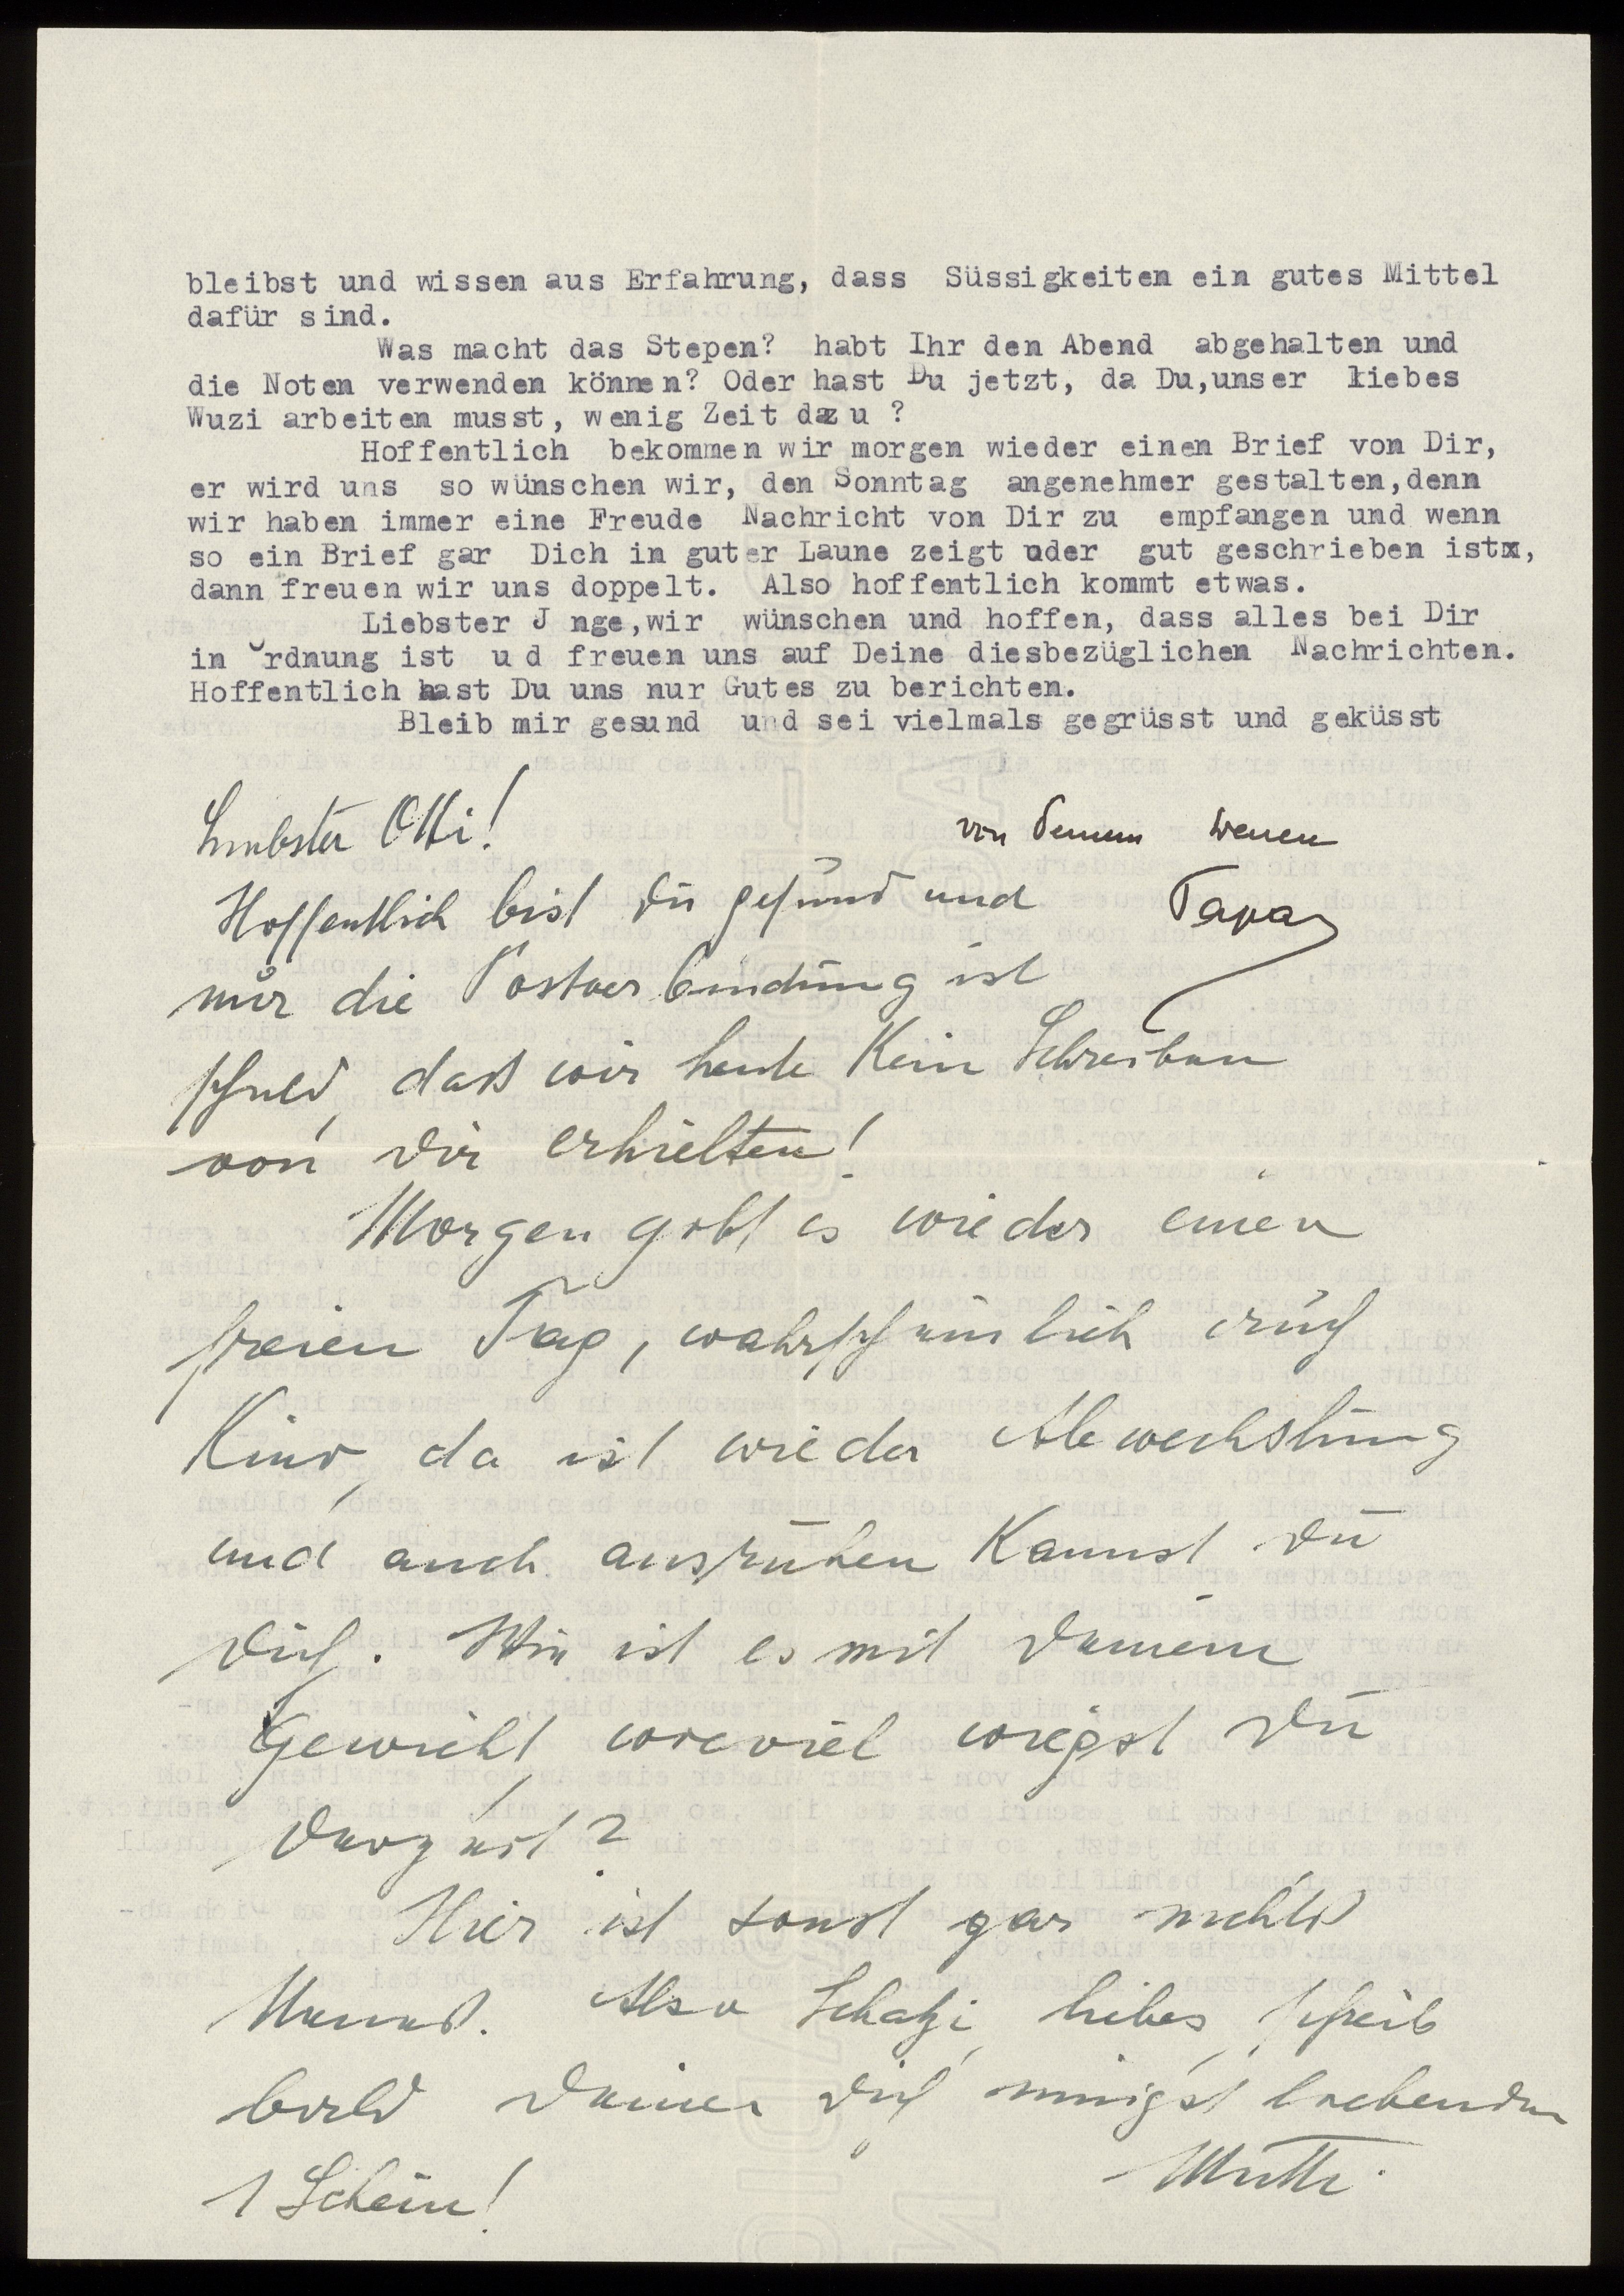 bleibst und wissen aus Erfahrung, dass Süssigkeiten ein gutes Mittel
dafür sind.
Was macht das Stepen? habt Ihr den Abend abgehalten und
die Noten verwenden können? Oder hast Du jetzt, da Du,unser liebes
Wuzi arbeiten musst, wenig Zeit dazu ?
Hoffentlich bekommen wir morgen wieder einen Brief von Dir,
er wird uns so wünschen wir, den Sonntag angenehmer gestalten,denn
wir haben immer eine Freude Nachricht von Dir zu empfangen und wenn
so ein Brief gar Dich in guter Laune zeigt oder gut geschrieben istx,
dann freuen wir uns doppelt. Also hoffentlich kommt etwas.
Liebster J nge,wir wünschen und hoffen, dass alles bei Dir
in Ordnung ist u d freuen uns auf Deine diesbezüglichen Nachrichten.
Hoffentlich hast Du uns nur Gutes zu berichten.
Bleib mir gesund und sei vielmals gegrüsst und geküsst
von Deinem treuen
Papa
Liebster Otti!
Hoffentlich bist Du gesund und
nur die Postverbindung ist
schuld, daß wir heute kein Schreiben
von Dir erhielten!
Morgen gibt es wieder einen
freien Tag, wahrscheinlich auch
Kino, da ist wieder Abwechslung
und auch ausruhen kannst Du
Dich. Wie ist es mit Deinem
Gewicht, wieviel wiegst Du
derzeit?
Hier ist sonst gar nichts
Neues. Also Schatzi, liebes, schreib
bald Deiner Dich innigst liebenden
Mutti.
1 Schein!